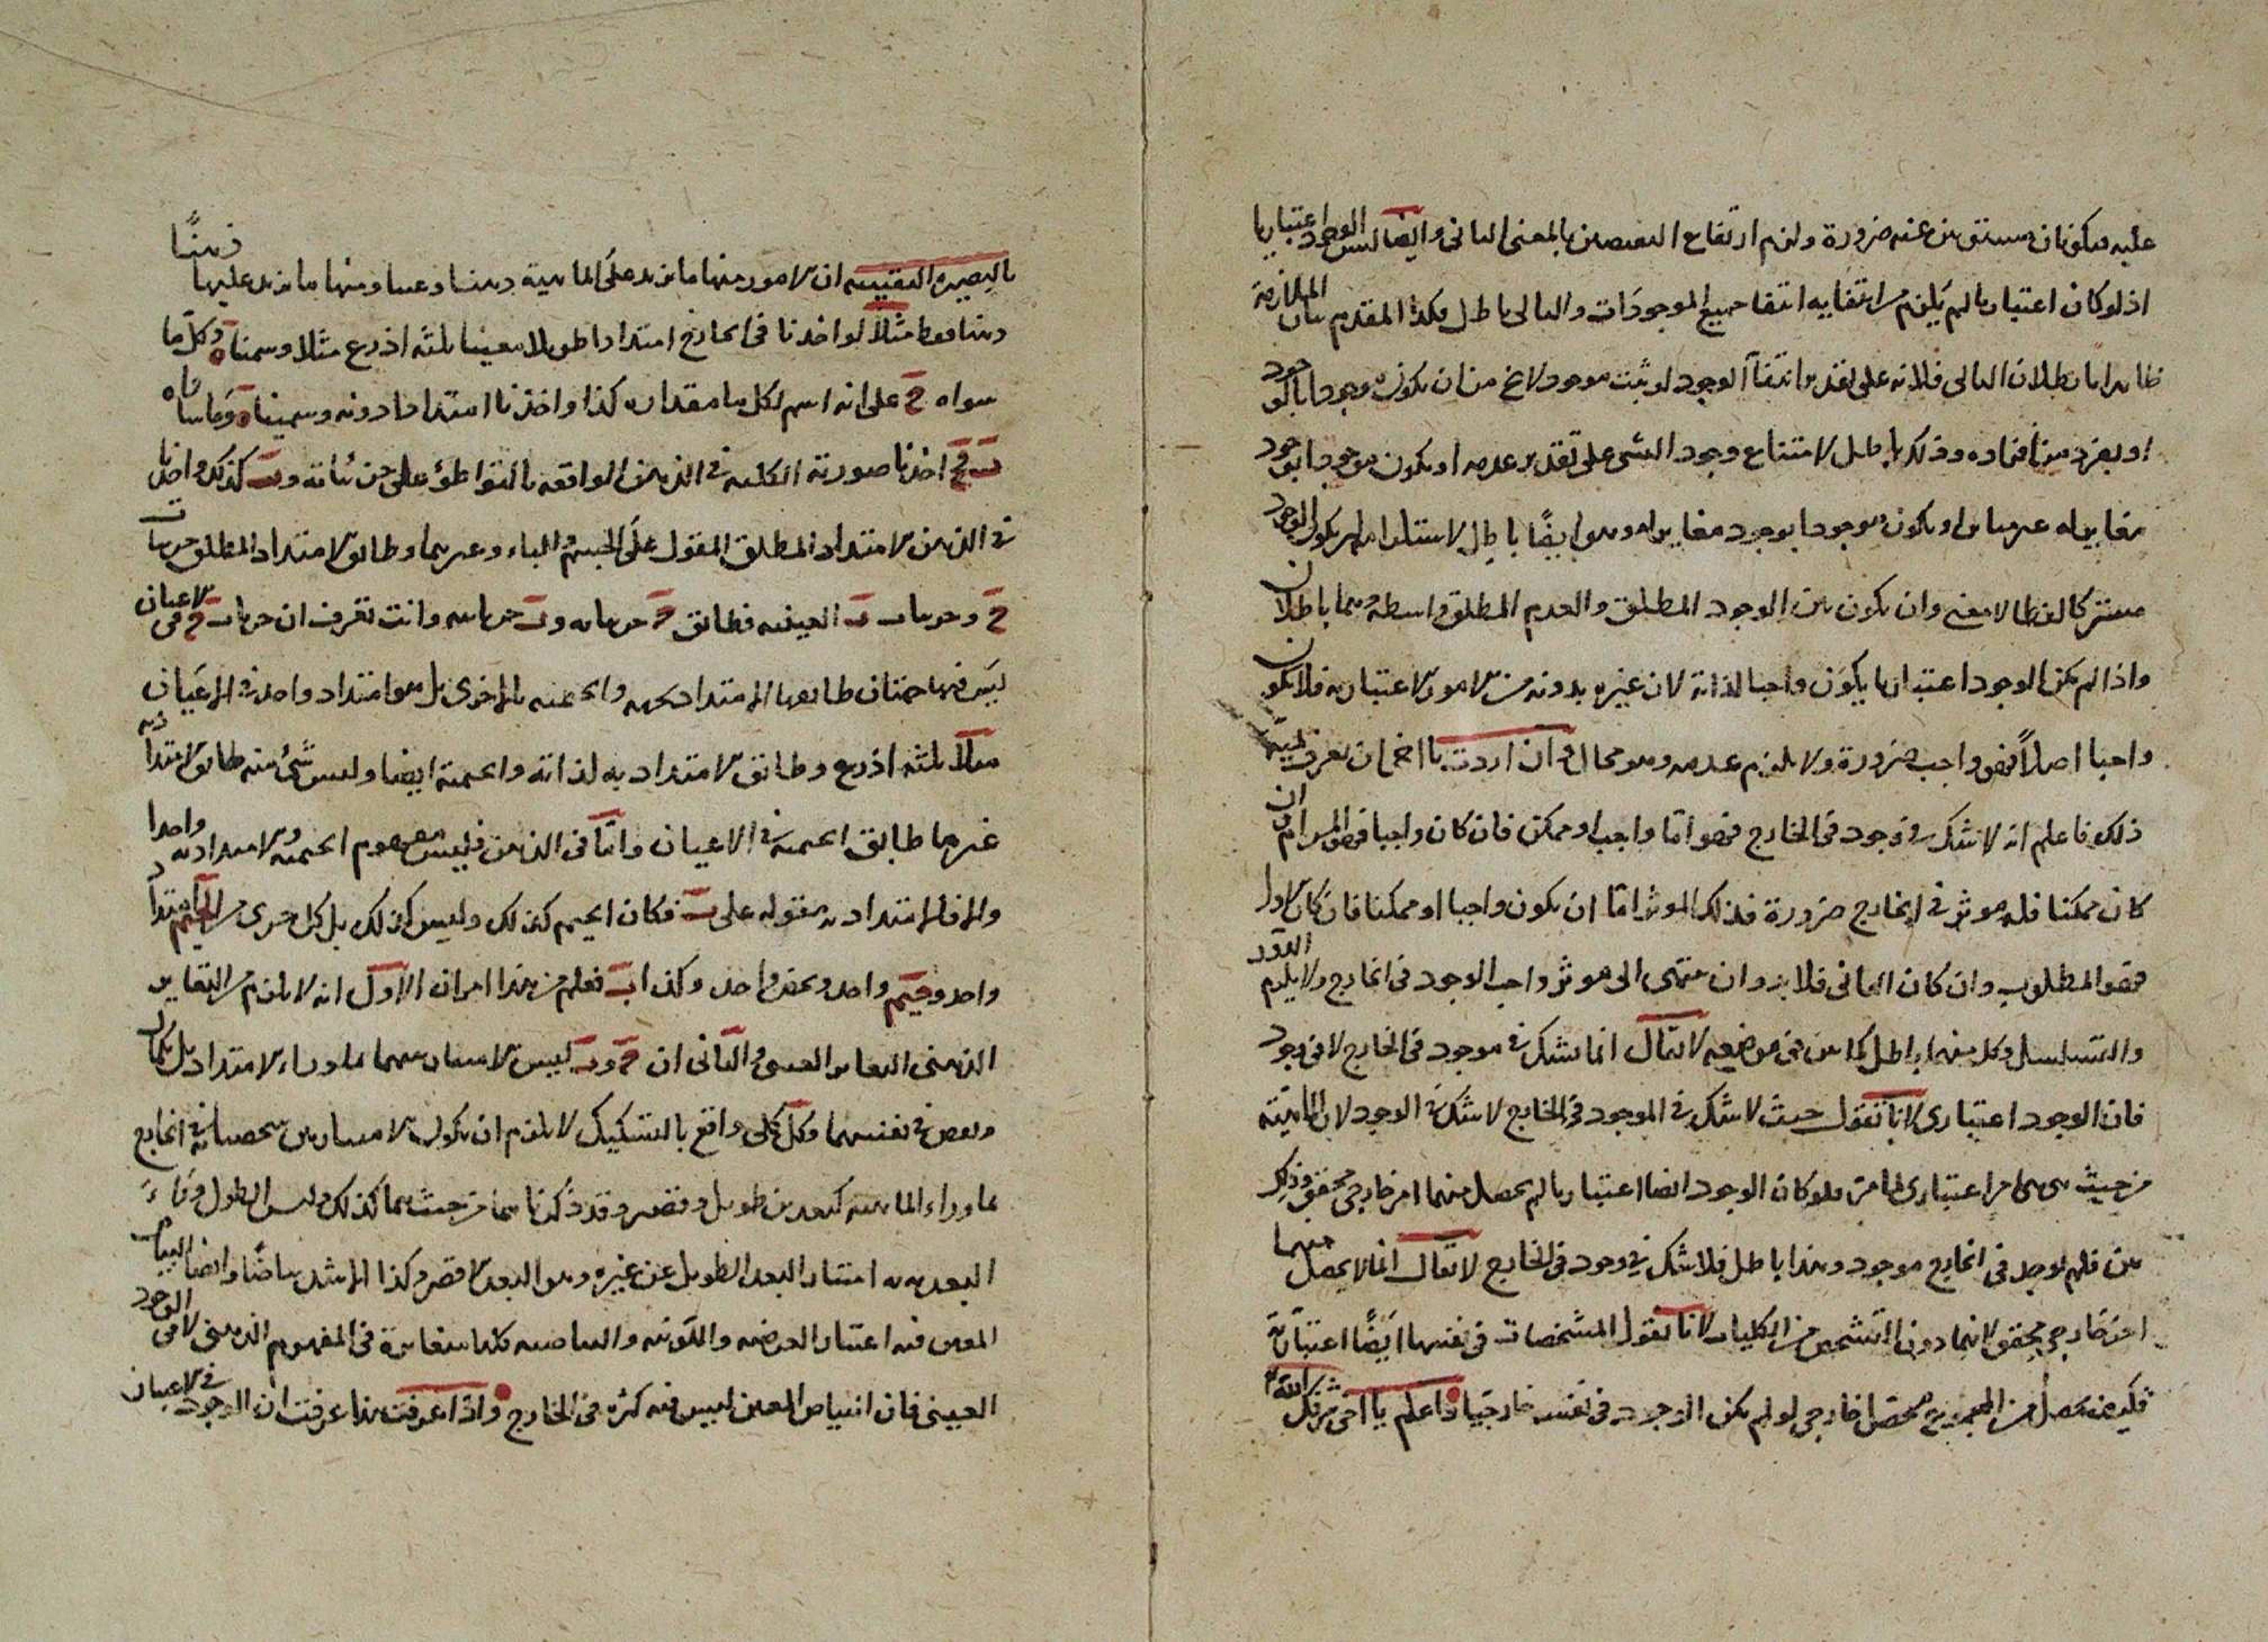 عليه فيكون ان مستويين عنه ضرورة ولزم ارتفاع النقيضين بالمعنى الثانى وايضا ليس الوجود اعتباريا
اذ لو كان اعتباريا لم يلزم من انتفايه انتفا جميع الموجودات والتالى باطل فكذا المقدم بيان الملازمة
ظاهر اما بطلان التالى فلانه على تقدير انتفآ الوجود لو ثبت موجود لا يخ من ان يكون موجودا بالوجود
او بفرد من افراده وذلك باطل لامتناع وجود الشى على تقدير عدمه او يكون موجودا بوجود
مغاير له او يكون موجودا بوجود مغاير له وهو ايضًا باطل لاستلزامه ان يكون الوجود
مشتركا لفظا لا معنى وان يكون بين الوجود المطلق والعدم المطلق واسطة وهما باطلان
واذا لم يكن الوجود اعتباريا يكون واجبا لذاته لان غيره بدونه من الامور الاعتباريه فلا يكون
واجبا اصلاً فهو واجب ضرورة ولا يلزم عدمه وهو محال وان اردت يا اخى ان تعرف
ذلك فاعلم انه لا شك فى وجود فى الخارج فهو اما واجب او ممكن فان كان واجبا فهو المرام وان
كان ممكنا فله موثر فى الخارج ضرورة فذلك الموثر اما ان يكون واجبا او ممكنا فان كان الاول
فهو المطلوب وان كان الثانى فلا بد وان ينتهى الى موثر واجب الوجود فى الخارج ولا يلزم الدور
والتسلسل وكل منهما باطل كما بين فى موضعه لا يقال انما نشك فى موجود فى الخارج لا فى وجود
فان الوجود اعتبارى لانا نقول حيث لا شك فى الموجود فى الخارج لا شك فى الوجود لان الماهية
من حيث هى هى امر اعتبارى لما مر فلو كان الوجود ايضا اعتباريا لم يحصل منهما امر خارجى محقق وذلك
بين فلم يوجد فى الخارج موجود وهذا باطل فلا شك فى وجود فى الخارج لا يقال انما لا يحصل منهما
امر خارجى محقق لانهما دون التشخص من الكليات لانا نقول المشخصات فى نفسها ايضًا اعتباريّة
فكيف يحصل من المجموع محصل خارجى لو لم يكن الوجود فى نفسه خارجيا واعلم يا اخى شرفك الله
بالبصيرة اليقينيه ان الامور منها ما يزيد على الماهية ذهنا وعينا ومنها ما يزيد عليها ذهنًا
ذهنا فقط مثلاً لو اخذنا فى الخارج امتدادا طويلا معينا بثلثه اذرع مثلا وسميناه وكل ما
سواه ح على انه اسم لكل ما مقداره كذا واخذنا امتدادا دونه وسميناه وما ساواه
ب ثم اخذنا صورته الكليه فى الذهن الواقعه بالتواطؤ على جزئياته و ب كذلك واخذنا
فى الذهن الامتداد المطلق المقول على الجيم والباء وغيرهما وطابق الامتداد المطلق جزئيات
ح وجزئيات ب العينيه فطابق ح جزئياته و ب جزئياته وانت تعرف ان جزئيات ح فى الاعيان
ليس فيها جهتان طابقها الامتداد بجهه والجيميه بالاخرى بل هو امتداد واحد فى الاعيان
مثلاً بثلثه اذرع وطابق الامتداديه لذاته والجيمية ايضا وليس شئ منه طابق الامتداديه
غير ما طابق الجيميه فى الاعيان وامّا فى الذهن فليس مفهوم الجيميه والامتداديه واحدا
والا فالامتداديه مقوله على ب فكان الجيم كذلك وليس كذلك بل كل جزئى من الجيم امتداد
واحد وجيم واحد وبعد واحد وكذا ب فعلم من هذا امران الاول انه لا يلزم من التغاير
الذهنى التغاير العينى والثانى ان ح و ب ليس الامتياز بينهما بما وراء الامتداد بل بكمال
ونقص فى نفسهما وكل كلى واقع بالتشكيك لا يلزم ان يكون الامتياز بين شخصياته فى الخارج
بما وراء الماهيه كبعدين طويل وقصير وقد ذكرنا هما من حيث هما كذلك وليس الطول وراءَ
البعديه به امتياز البعد الطويل عن غيره وهو البعد الاقصر وكذا الاشد بياضًا وايضا البياض
المعين فيه اعتبار العرضيه واللونيه والبياضيه كلها متغايرة فى المفهوم الذهنى لا فى الوجود
العينى فان البياض المعين ليس فيه كثره فى الخارج واذا عرفت هذا عرفت ان الوجود فى الاعيان